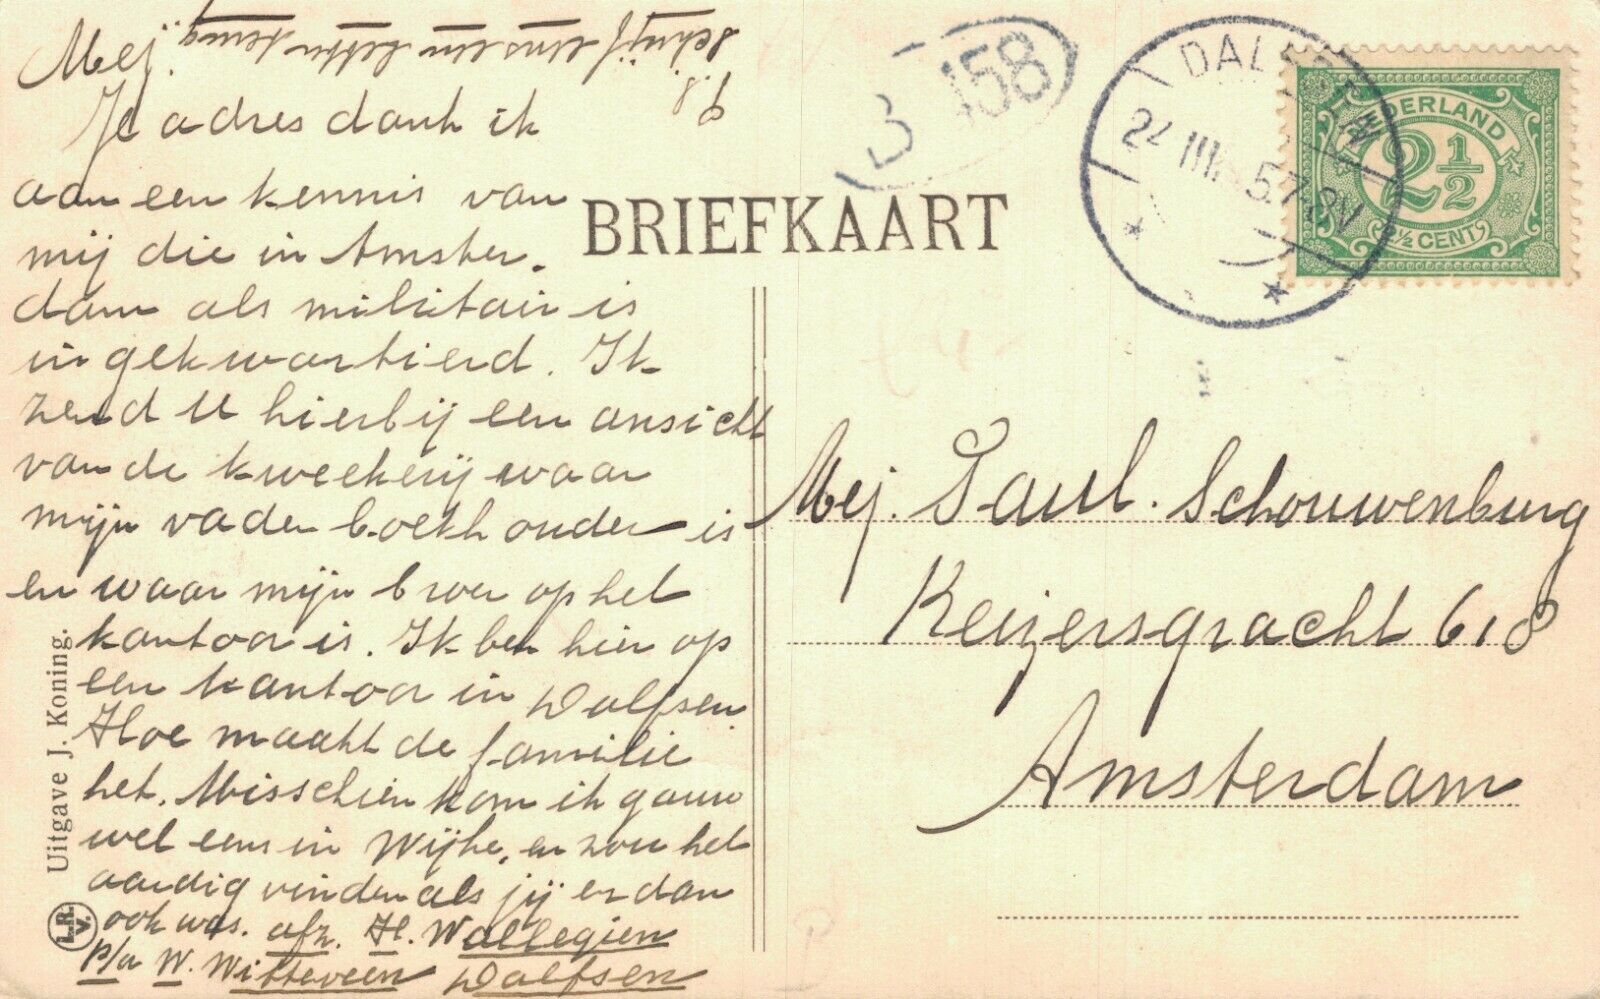 Mej.
Je adres dank ik
aan een kennis van
mij die in Amster.
dam als militair is
ingekwartierd. Ik
zend U hierbij een ansicht
van de kweekerij waar
mijn vader boekhouder is
en waar mijn broer op het
kantoor is. Ik ben hier op
een kantoor in Dalfsen.
Hoe maakt de familie
het. Misschien kom ik gauw
wel eens in Wijhe, en zou het
aardig vinden als jij er dan
ook was. afz. H. Wallegien
p/a W. Witteveen Dalfsen
P.S.
schrijf eens een letter terug
Uitgave J. Koning.
L.R.
V.
BRIEFKAART
3 458
DALFSEN
24 III 15 7-8V
NEDERLAND
2 1/2
2 1/2 CENT
Mej. Paul. Schouwenburg
Keizersgracht 618
Amsterdam